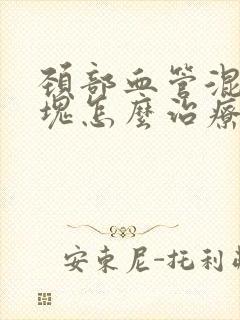 頚部血管混
塊怎麼治療
安東尼-托利